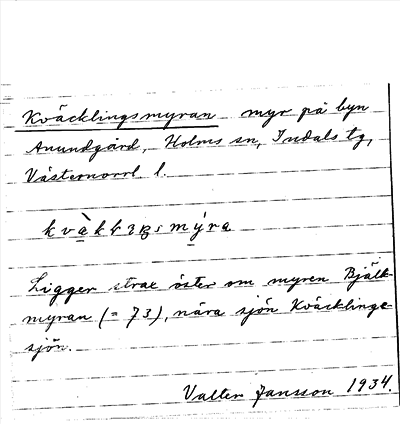 Kväcklingsmyran myr på byn
Anundgård, Holms sn, Indals tg,
Västernorrl. l.
Ligger strax öster om myren Bjälk-
myran (= 73), nära sjön Kväcklings-
sjön.
Valter Jansson 1934.